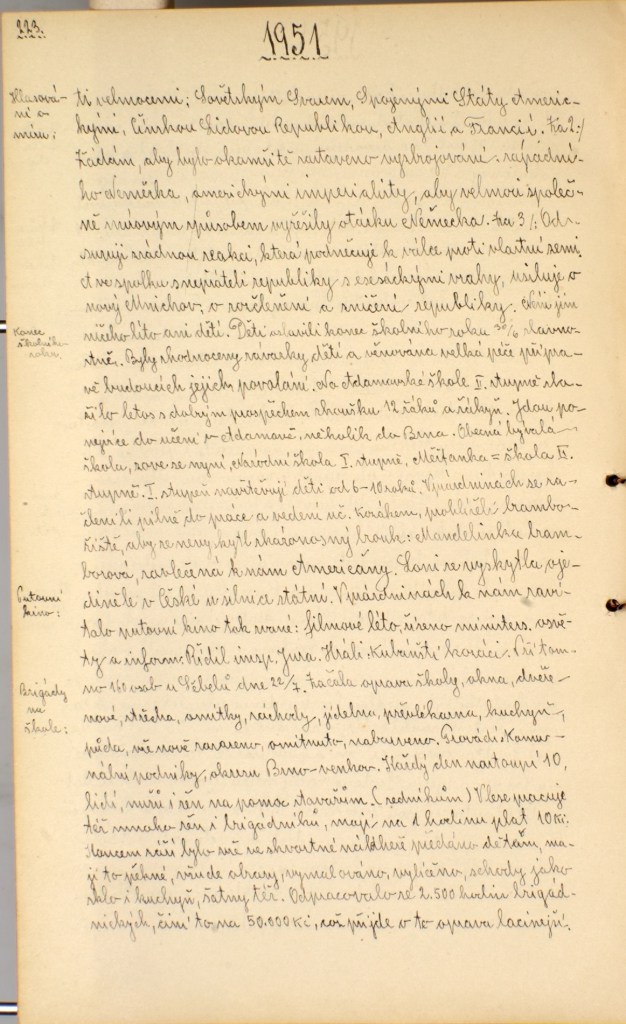 223.
1951
Hlasová-
ní o
mír:
ti velmocemi; Sovětským Svazem, Spojenými Státy Americ-
kými, Čínskou Lidovou Republikou, Anglií a Francií. Za 2:/
Žádám, aby bylo okamžitě zastaveno vyzbrojování západní-
ho Německa, americkými imperialisty, aby velmoci společ-
ně mírovým způsobem vyřešily otázku Německa. Za 3/: Od-
suzuji zrádnou reakci, která podněcuje k válce proti vlastní zemi
a ve spolku s nepřáteli republiky s esesáckými vrahy, usiluje o
nový Mnichov, o rozčlenění a zničení republiky. Není jim
ničeho líto ani dětí. Děti oslavili konec školního roku 28/6 slavno-
Konec
školního
roku.
stně. Byly zhodnoceny závazky dětí a věnována velká péče přípra-
vě budoucích jejich povolání. Na Adamovské škole II. stupně slo-
žilo letos s dobrým prospěchem zkoušku 12 žáků a žákyň. Jdou po-
nejvíce do učení v Adamově, několik do Brna. Obecná bývalá
škola, zove se nyní, Národní škola I. stupně, Měšťanka = škola II.
stupně. I. stupeň navštěvují děti od 6-10 roků. V prázdninách se za-
členili pilně do práce a vedení uč. Kozákem, prohlíželi brambo-
řiště, aby se nevyskytl zházonosný brouk: Mandelinka bram-
borová, zavlečená k nám Američany. Loni se vyskytla oje-
diněle v České u silnice státní. V prázdninách k nám zaví-
Putovní
kino:
talo putovní kino tak zvané: filmové léto, řízeno minister. osvě-
ty a inform. Řídil insp. Jura. Hráli: Kubáňští kozáci. Při tom-
no 160 osob u Sébelů dne 22/7. Začala oprava školy, okna, dveře
Brigády
na
škole:
nové, střecha, omítky, záchody, jídelna, převlékárna, kuchyň,
půda, vše nově opraveno, omítnuto, nabarveno. Provádí: Komu-
nální podniky, okresu Brno-venkov. Každý den nastoupí 10,
lidí, mužů i žen na pomoc stavařům. (zedníkům) V lese pracuje
též mnoho žen i brigádníků, mají na 1 hodinu plat 10 Kč.
Koncem září bylo vše ve skvostné nádheře předáno dětem, ma-
jí to pěkné, všude obrazy, vymalováno, vylíčeno, schody jako
sklo i kuchyň, šatny též. Odpracovalo se 2.500 hodin brigád-
nických, činí to na 50.000 Kč, což přijde o to oprava lacinější.